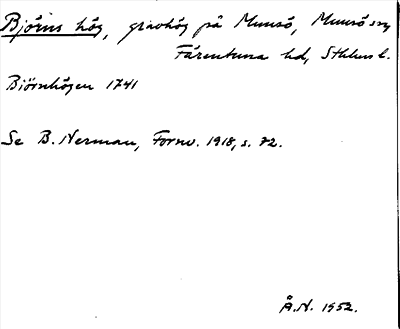 Björns hög, gravhög på Munsö, Munsö sn,
Färentuna hd, Sthlms l.
Björnhögen 1741
Se B. Nerman, Fornv. 1918, s. 72.
Å.N. 1952.